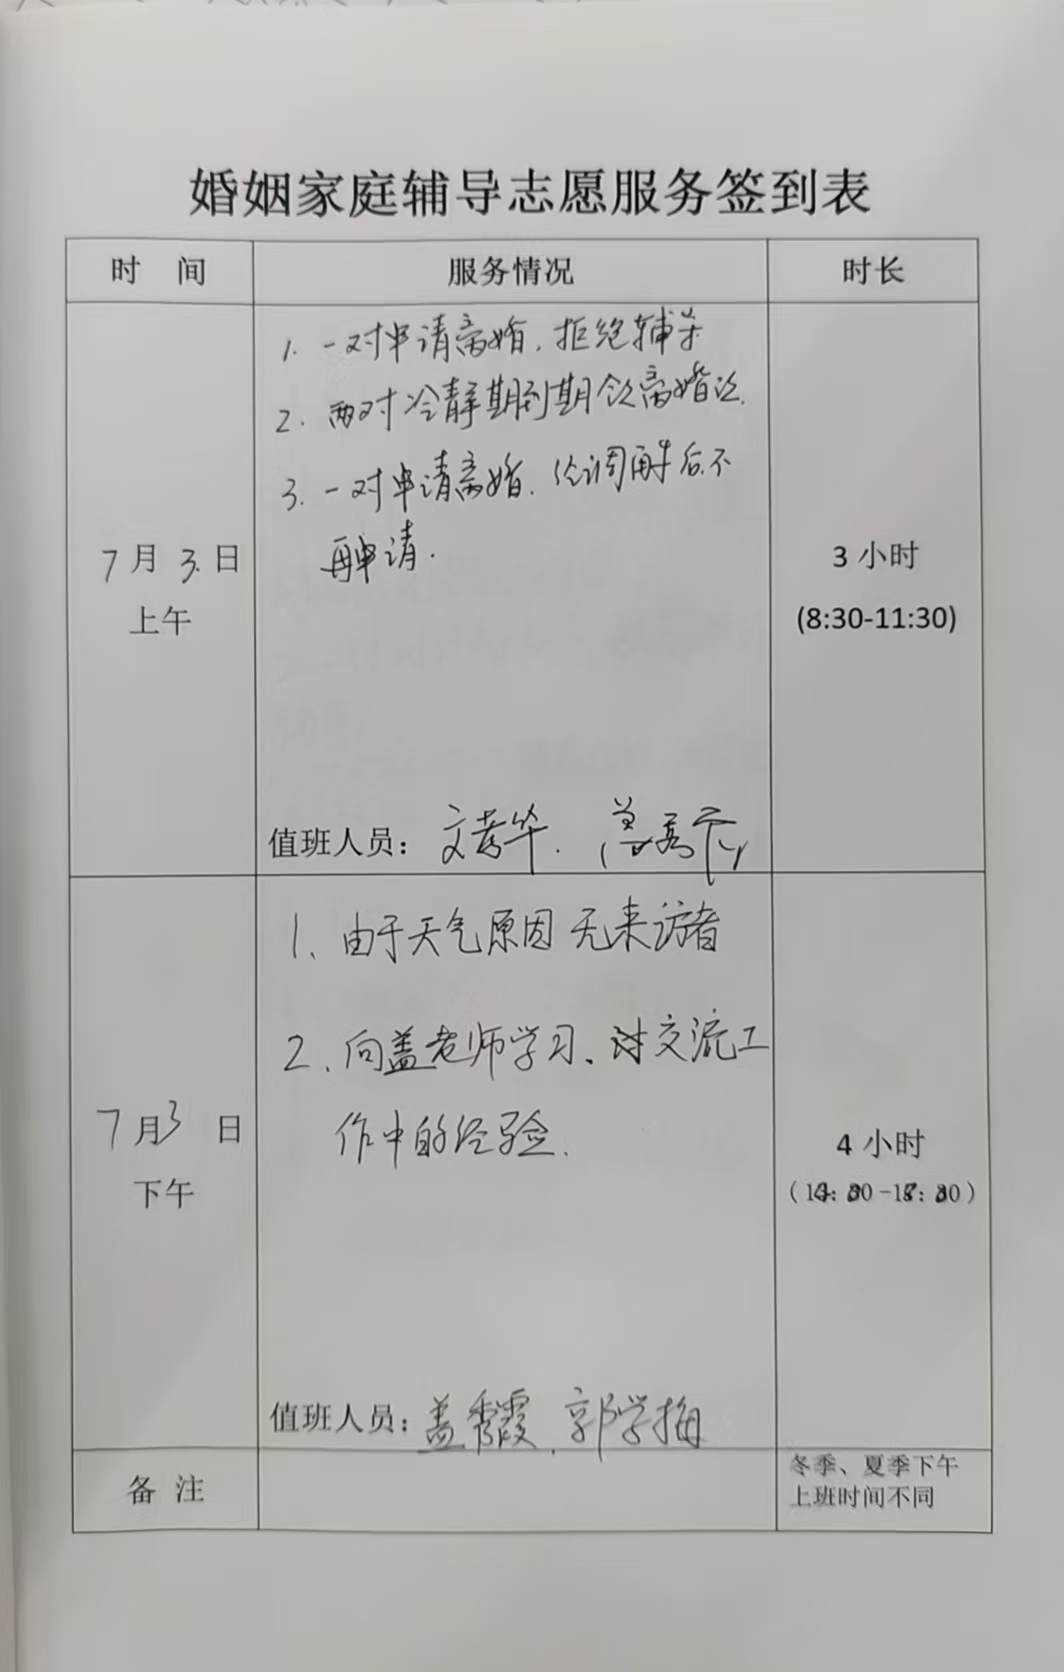 婚姻家庭辅导志愿服务签到表
时 间 服务情况 时长
1. 一对申请离婚，拒绝辅导
2. 两对冷静期到期领离婚证.
3. 一对申请离婚. 经调解后不
再申请.
7月 3.日
上午
3 小时
(8:30-11:30)
值班人员： 文孝华. 曾秀
1、由于天气原因 无来访者
2、向盖老师学习、讨交流工
作中的经验.
7月3 日
下午
4 小时
值班人员：盖秀霞、郭学梅
备 注
冬季、夏季下午
上班时间不同